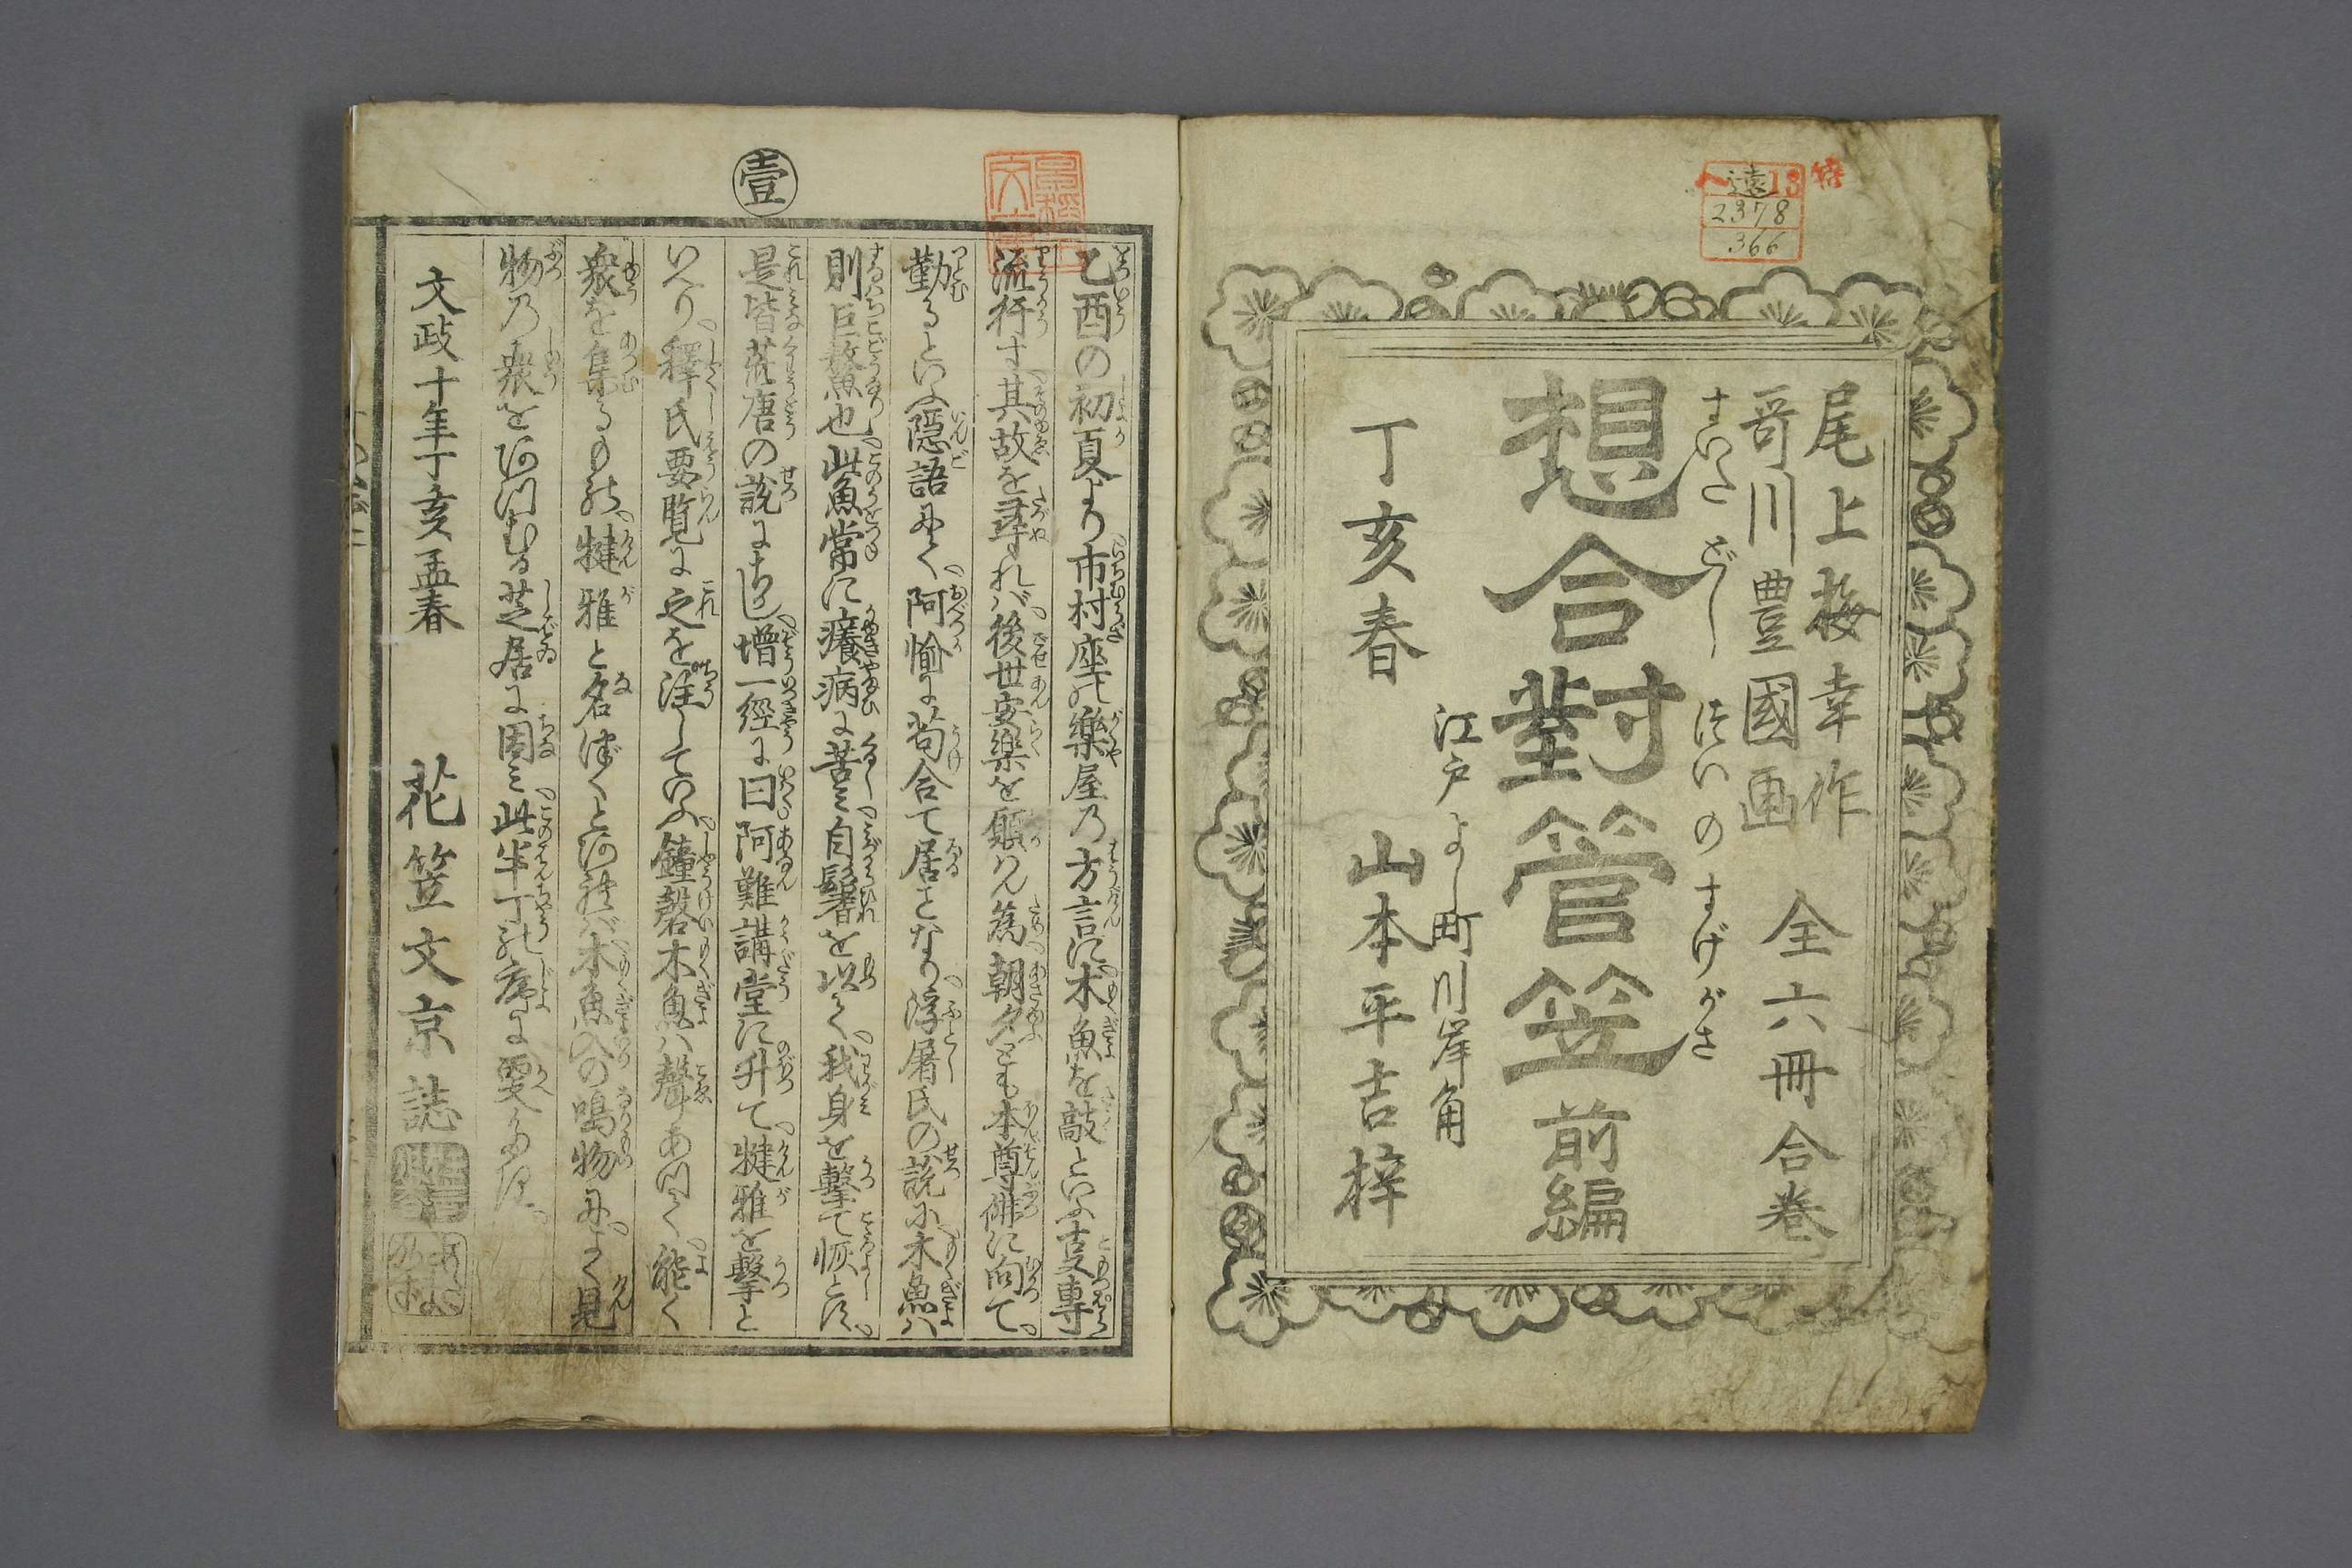 尾上梅幸作
哥川豊國画
全六冊合巻
すいた どし ついのすげがさ
想合對管笠 前編
江戸よし町川岸角
丁亥春 山本平吉梓
遠 13
2378
366
壹
乙酉の初夏より市村座の樂屋乃方言に木魚を敲といふ吏專
流行す其故を尋れバ後世安樂を願ハん為朝夕とも本尊俳に向て
勤るといふ隠語にて阿愉に苟合て居ことなり浮屠氏の説に木魚ハ
則巨鼇魚也此魚常に癢病に苦ミ自鬐を以て我身を擊て恢とす
是皆荒唐の説にちかし增一經に曰阿難講堂に升て犍雅を擊と
いへり釋氏要覧に之を注していふ鐘磬木魚ハ聲あつて能く
衆を集るもの故犍雅と名づくとあれバ木魚入の鳴物にてよく見
物乃衆をあつむる芝居に因ミ此半丁の序に
文政十年丁亥孟春 花笠文京誌